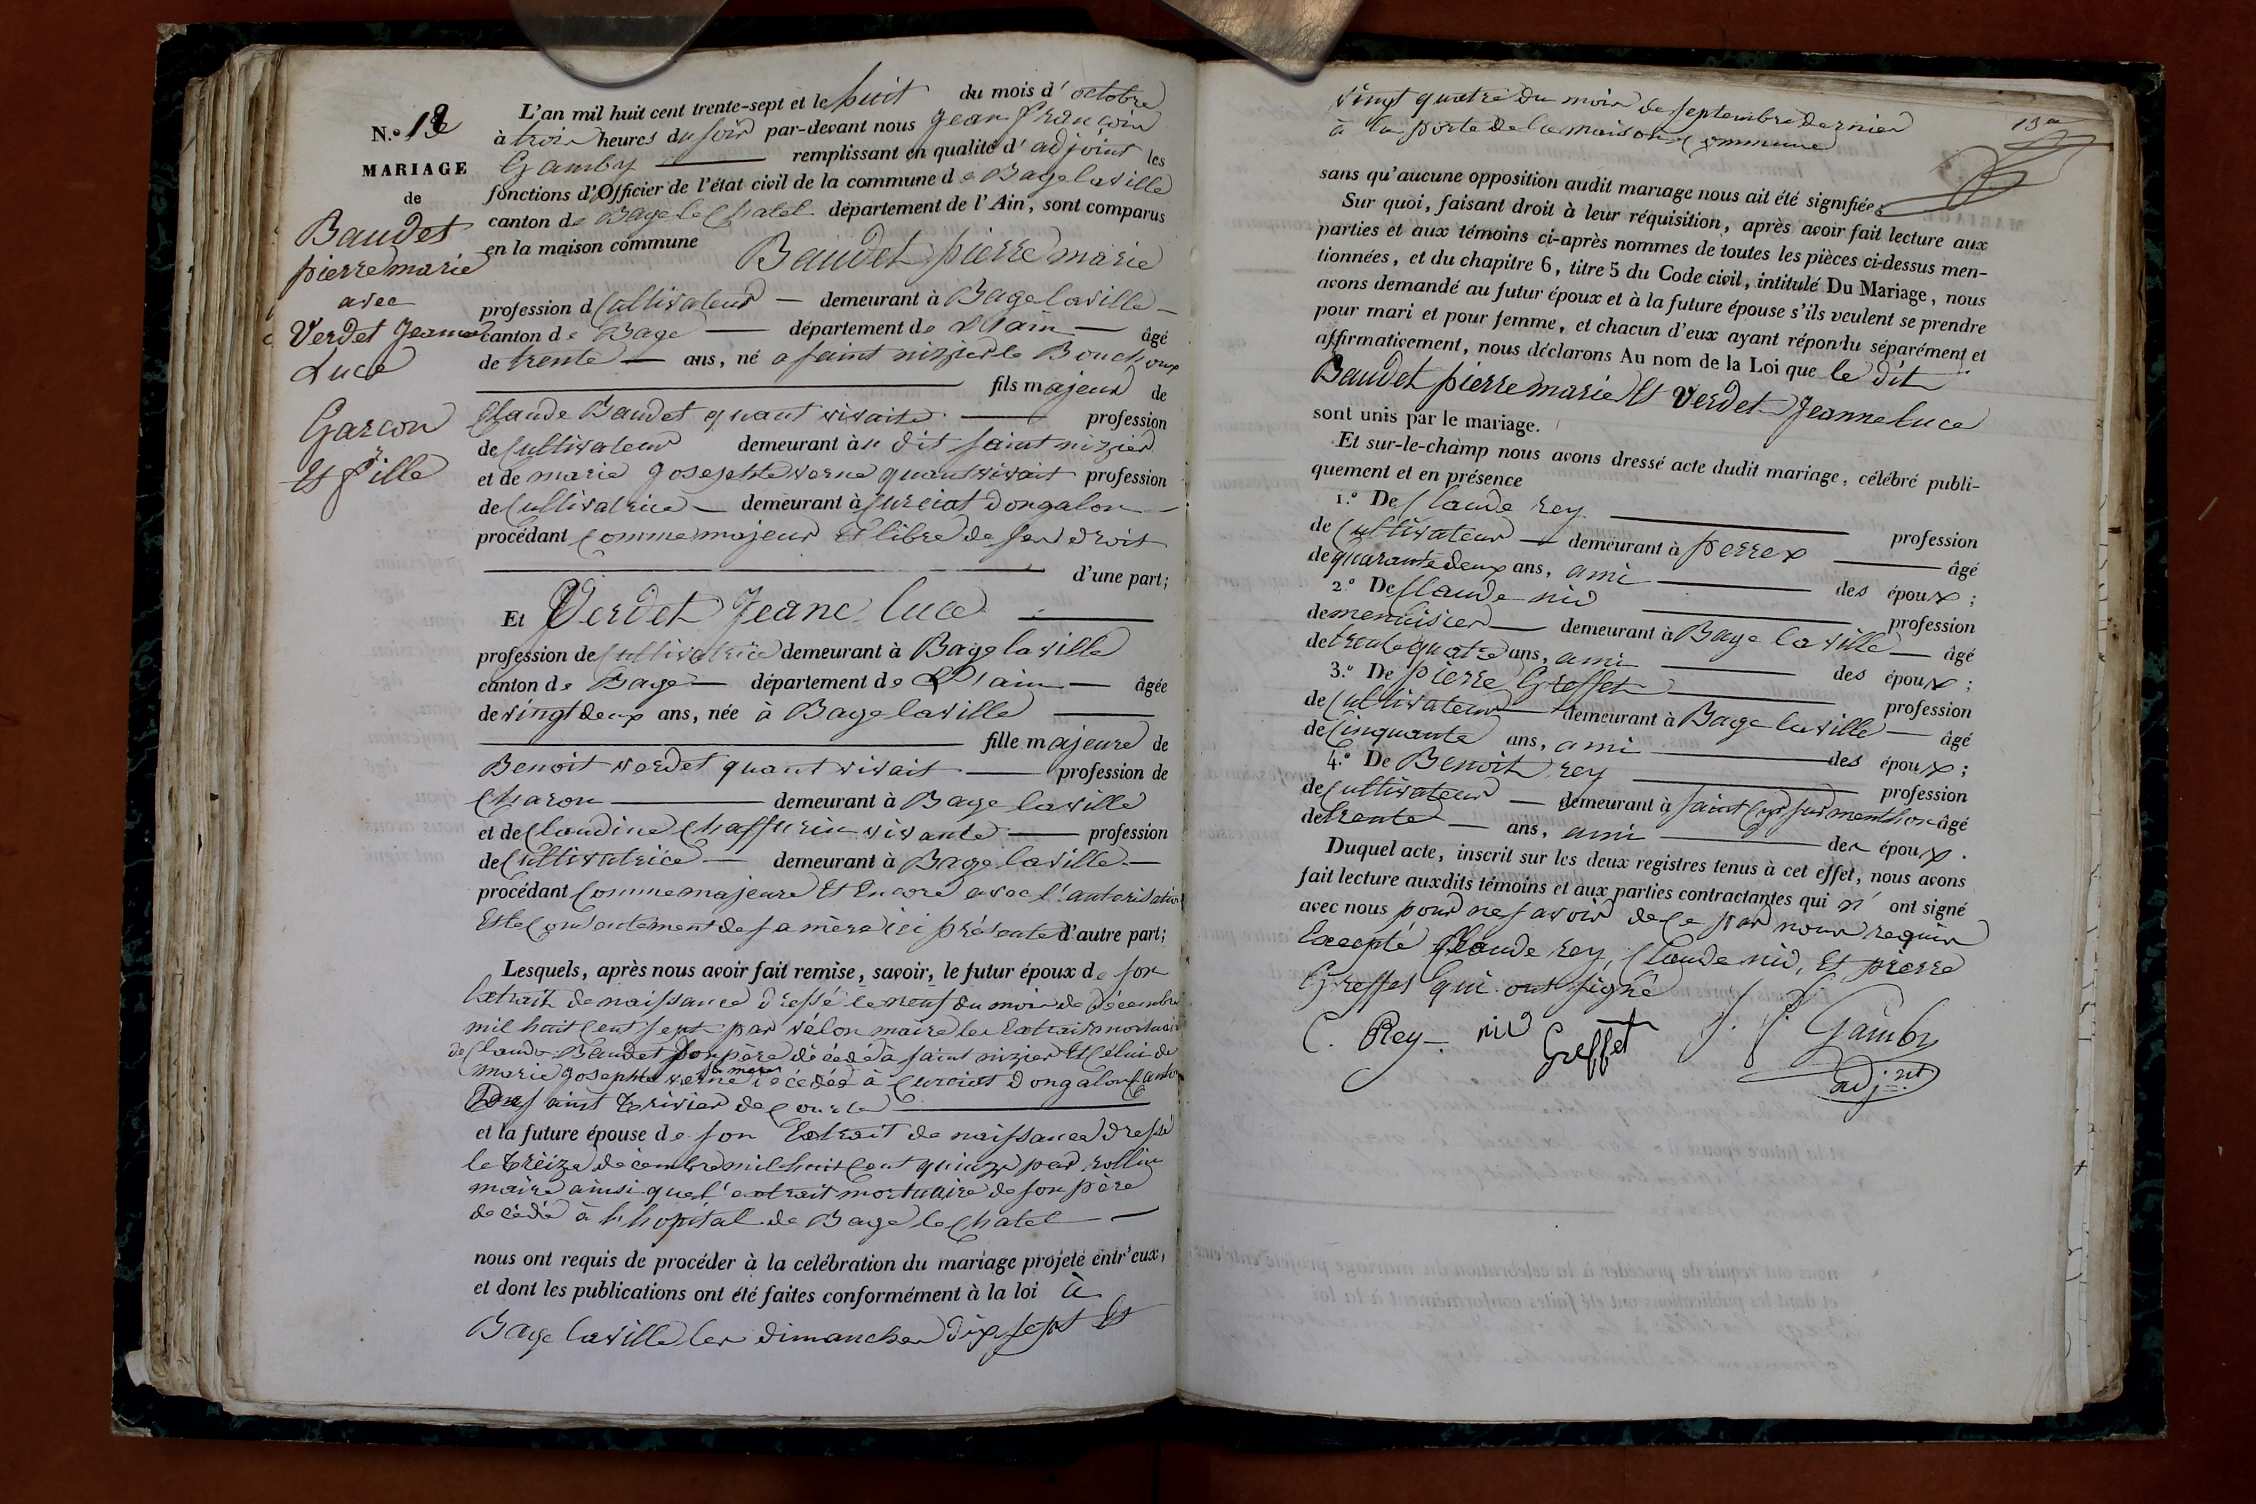 N.º 13e
MARIAGE
de
Baudet
pierre marie
avec
Verdet Jeanne
Luce
Garcon
Et fille
L'an mil huit cent trente-sept et le huit du mois d'octobre
à trois heures du soir par-devant nous Jean François
Gamby remplissant en qualité d'adjoint les
fonctions d'Officier de l'état civil de la commune de Bage la ville
canton de Bage le Chatel département de l'Ain, sont comparus
en la maison commune Baudet pierre marie
profession d Cultivateur demeurant à Bage la ville
canton de Bage département de L'ain âgé
de trente ans, né a saint nizier le Bouchoux
fils majeur de
Claude Baudet quant vivait profession
de Cultivateur demeurant au dit saint nizier
et de marie Josephte verne quant vivait profession
de Cultivatrice demeurant à Curciat dongalon
procédant Comme majeur Et libre de ses droits
d'une part;
Et Verdet Jeane luce
profession de Cultivatrice demeurant à Bage la ville
canton de Bage département de L'ain âgée
de vingt deux ans, née à Bage la ville
fille majeure de
Benoit verdet quant vivait profession de
Charon demeurant à Bage la ville
et de Claudine Chaffurin vivante profession
de Cultivatrice demeurant à Bage la ville
procédant Comme majeure Et Encore avec l'autorisation
Et le Consentement de sa mère ici présente d'autre part;
Lesquels, après nous avoir fait remise, savoir, le futur époux de son
Extrait de naissance dressé le neuf du mois de décembre
mil huit Cent sept par vélon maire les Extraits mortuaire
de Claude Baudet son père décédé à saint nizier Et Celui de
marie Josephte verne sa mere décédée à Curciat dongalon Canton
De saint trivier de Courte
et la future épouse de son Extrait de naissance dressé
le treize décembre mil huit Cent quinze par rollin
maire ainsi que l'extrait mortuaire de son père
décédé à l'hopital de Bage le Chatel
nous ont requis de procéder à la celébration du mariage projeté entr'eux,
et dont les publications ont été faites conformément à la loi à
Bage la ville les dimanches dix sept Et
vingt quatre du mois de septembre dernier
à la porte de la maison Commune
13e
sans qu'aucune opposition audit mariage nous ait été signifiée;
Sur quoi, faisant droit à leur réquisition, après avoir fait lecture aux
parties et aux témoins ci-après nommes de toutes les pièces ci-dessus men-
tionnées, et du chapitre 6, titre 5 du Code civil, intitulé Du Mariage, nous
avons demandé au futur époux et à la future épouse s'ils veulent se prendre
pour mari et pour femme, et chacun d'eux ayant répondu séparément et
affirmativement, nous déclarons Au nom de la Loi que le dit
Baudet pierre marie Et Verdet Jeanne luce
sont unis par le mariage.
Et sur-le-champ nous avons dressé acte dudit mariage, célébré publi-
quement et en présence
1.º De Claude rey profession
de Cultivateur demeurant à perrex âgé
de quarante deux ans, ami des époux;
2.º De Claude nid profession
de menuisier demeurant à Bage la ville âgé
de trente quatre ans, ami des époux;
3.º De pierre Greffet profession
de Cultivateur demeurant à Bage la ville âgé
de Cinquante ans, ami des époux;
4.º De Benoit rey profession
de Cultivateur demeurant à saint Cyr sur menthon âgé
de trente ans, ami des époux.
Duquel acte, inscrit sur les deux registres tenus à cet effet, nous avons
fait lecture auxdits témoins et aux parties contractantes qui n' ont signé
avec nous pour ne savoir de Ce par nous requis
Excepté Claude rey, Claude nid, Et pierre
Greffet qui ont signé
C. Rey nid Greffet J. f. Gamby
adj.nt